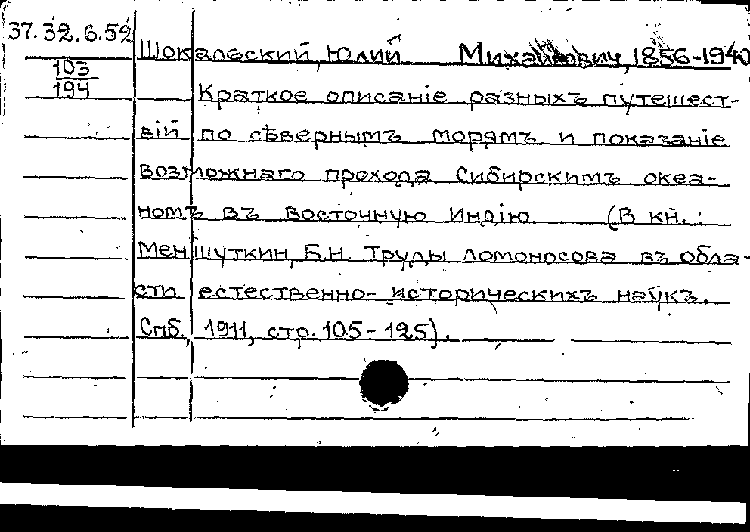 37.32.6.52
Шокальский, Юлий Михайлович, 1856-1940
103
194
Краткое описаніе разныхъ путешест-
вій по сѣвернымъ морямъ и показаніе
возможнаго прохода Сибирскимъ океа-
номъ въ восточную Индію (В кн.:
Меншуткин, Б.Н. Труды Ломоносова въ обла-
сти естественно-историческихъ наукъ.
Спб., 1911, стр. 105-125).